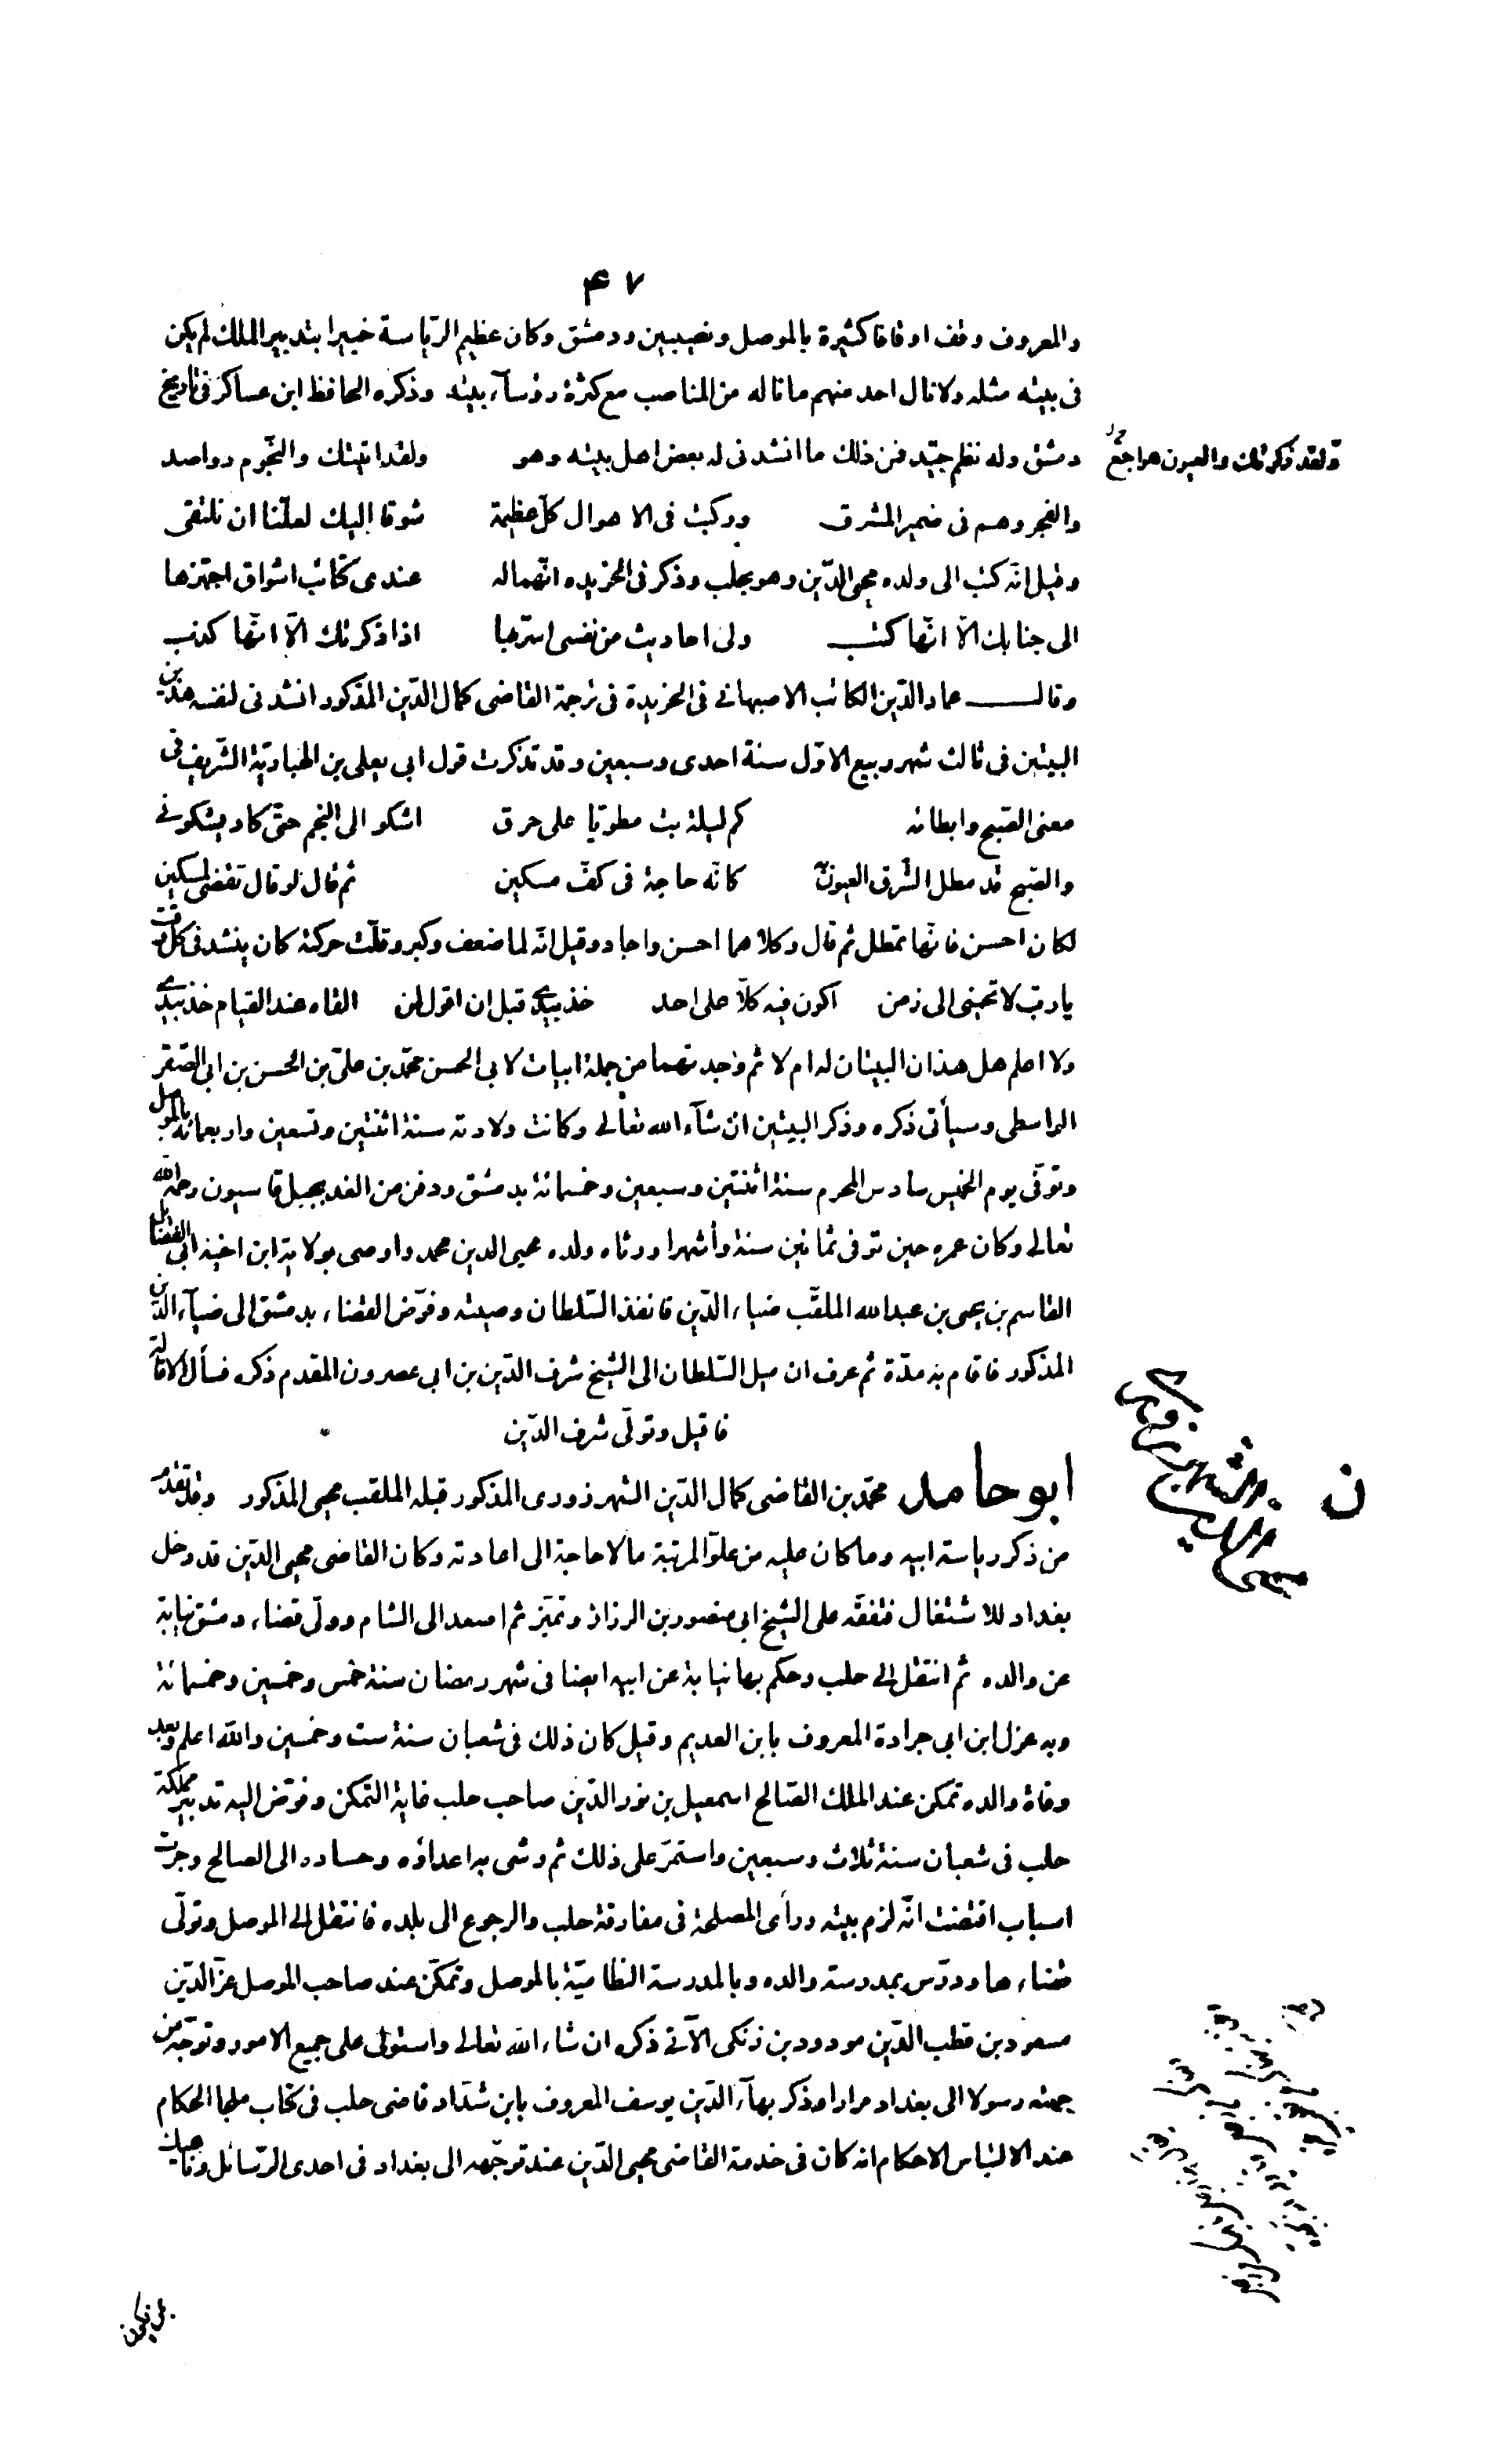 ۴۷
والمعروف وقف اوقافا كثيرة بالموصل ونصيبين ودمشق وكان عظيم الرّياسة خبيرا بتدبير الملك لم يكن
فى بيته مثله ولا نال احد منهم ما ناله من المناصب مع كثرة رؤسآء بيته وذكره الحافظ ابن عساكر فى تاريخ
دمشق وله نظم جيّد فمن ذلك ما انشدنى له بعض اهل بيته وهو ولقد اتيتك والنّجوم رواصد
ولقد ذكرتك والعيون هواجع
والفجر وهم فى ضمير المشرق وركبت فى الاهوال كلّ عظيمة شوقا إليك لعلّنا ان نلتقى
وقيل انّه كتب الى ولده محيى الدّين وهو بحلب وذكر فى الخريده انّهما له عندى كتائب اشواق اجهّزها
الى جنابك الّا انّها كتب ولى احاديث من نفسى اسرّ بها اذا ذكرتك الّا انّها كذب
وقال عماد الدّين الكاتب الاصبهانى فى الخريدة فى ترجمة القاضى كمال الدّين المذكور انشدنى لنفسه هذين
البيتين فى ثالث شهر ربيع الاوّل سنة احدى وسبعين وقد تذكرت قول ابى يعلى بن الهبّاريّة الشّريف فى
معنى الصّبح وابطائه كم ليلة بتّ مطويّا على حرق اشكو الى النّجم حتّى كاد يشكونى
والصّبح قد مطل الشّرق العيون به كانّه حاجة فى كفّ مسكين ثم قال لو قال تقضى لمسكين
لكان احسن فانّها تمطل ثم قال وكلاهما احسن واجاد وقيل انّه لما ضعف وكبر وقلّت حركته كان ينشد فى كل وقت
يا ربّ لا تحينى الى زمن اكون فيه كلّا على احد خذ بيدى قبل ان اقول لمن القاه عند القيام خذ بيدى
ولا اعلم هل هذان البيتان له ام لا ثم وجدتهما من جملة ابيات لابى الحسن محمّد بن علىّ بن الحسن بن ابى الصّقر
الواسطى وسيأتى ذكره وذكر البيتين ان شآء الله تعالى وكانت ولادته سنة اثنتين وتسعين واربعمائة بالموصل
وتوفّى يوم الخميس سادس المحرم سنة اثنتين وسبعين وخمسمائة بدمشق ودفن من الغد بجبل قاسيون رحمه الله
تعالى وكان عمره حين توفى ثمانين سنة وأشهرا ورثاه ولده محيى الدين محمد واوصى بولاية ابن اخيه ابى الفضايل
القاسم بن يحيى بن عبدالله الملقّب ضياء الدّين فانفذ السّلطان وصيته وفوّض القضاء بدمشق الى ضيآء الدّين
المذكور فاقام به مدّة ثم عرف ان ميل السّلطان الى الشيخ شرف الدّين بن ابى عصرون المقدم ذكره فسأل الاقالة
فاقيل وتولّى شرف الدّين
ابو حامد محمّد بن القاضى كمال الدّين الشهرزورى المذكور قبله الملقب محيى المذكور وقد تقدم
ن
من ذكر رياسة ابيه وما كان عليه من علوّ المرتبة ما لا حاجة الى اعادته وكان القاضى محيى الدّين قد دخل
بغداد للاشتغال فتفقّه على الشيخ ابى منصور بن الرزاز وتميّز ثم اصعد الى الشام وولّى قضاء دمشق نيابة
عن والده ثم انتقل الى حلب وحكم بها نيابة عن ابيه ايضا فى شهر رمضان سنة خمس وخمسين وخمسمائة
وبه عزل ابن ابى جرادة المعروف بابن العديم وقيل كان ذلك فى شعبان سنة ست وخمسين والله اعلم وبعد
وفاة والده تمكن عند الملك الصّالح اسمعيل بن نور الدّين صاحب حلب غاية التمكن وفوّض اليه تدبير مملكة
حلب فى شعبان سنة ثلاث وسبعين واستمرّ على ذلك ثم وشى به اعداؤه وحساده الى الصالح وجرت
اسباب اقتضت انّه لزم بيته ورأى المصلحة فى مفارقة حلب والرجوع الى بلده فانتقل الى الموصل وتولّى
قضاءها ودرّس بمدرسة والده وبالمدرسة النظاميّة بالموصل وتمكّن عند صاحب الموصل عزّ الدّين
مسعود بن قطب الدّين مودود بن زنكى الآتى ذكره ان شاء الله تعالى واستولى على جميع الامور وتوجّه من
جهته رسولا الى بغداد مرارا وذكر بهآء الدّين يوسف المعروف بابن شدّاد قاضى حلب فى كتاب ملجا الحكام
عند الالتباس الاحكام انه كان فى خدمة القاضى محيى الدّين عند توجّهه الى بغداد فى احدى الرّسائل وناهيك